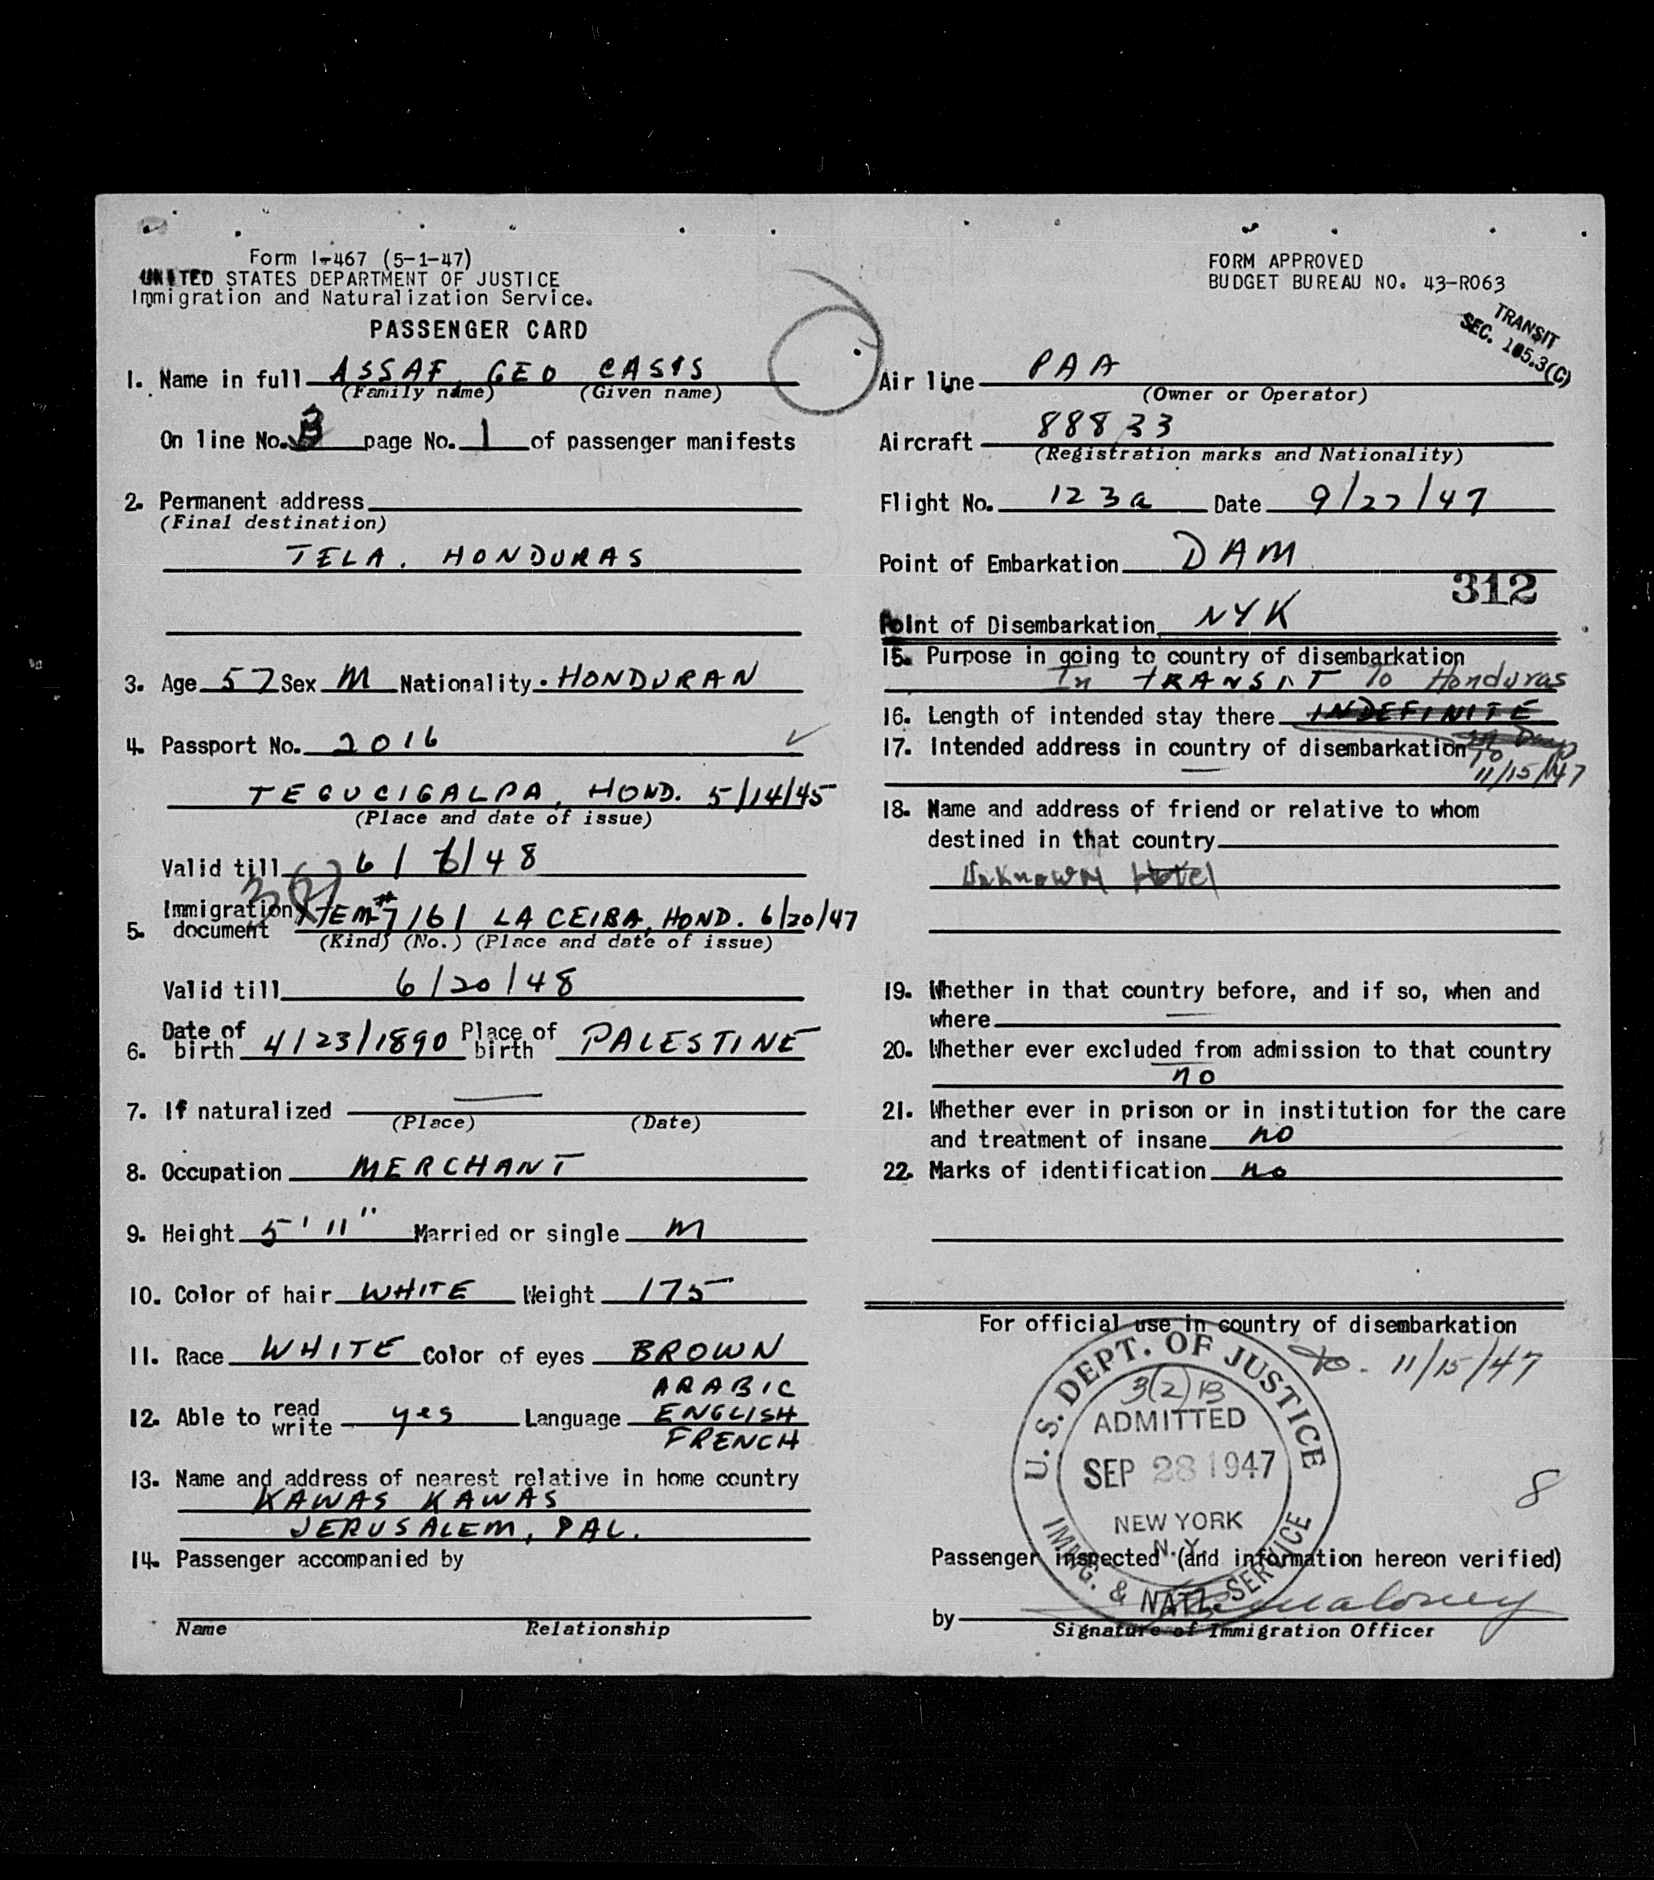 Form I-467 (5-1-47)
UNITED STATES DEPARTMENT OF JUSTICE
Immigration and Naturalization Service.
PASSENGER CARD
1. Name in full ASSAF, GEO CASIS
(Family name) (Given name)
On line No. 3 page No. 1 of passenger manifests
2. Permanent address
(Final destination)
TELA. HONDURAS
3. Age 57 Sex M Nationality HONDURAN
4. Passport No. 2016
TEGUCIGALPA, HOND. 5/14/45
(Place and date of issue)
Valid till 6/6/48
3(2)
5. Immigration document TEM #7161 LA CEIBA, HOND. 6/20/47
(Kind) (No.) (Place and date of issue)
Valid till 6/20/48
6. Date of birth 4/23/1890 Place of birth PALESTINE
7. If naturalized
(Place) (Date)
8. Occupation MERCHANT
9. Height 5' 11" Married or single M
10. Color of hair WHITE Weight 175
11. Race WHITE Color of eyes BROWN
ARABIC
12. Able to read write yes Language ENGLISH
FRENCH
13. Name and address of nearest relative in home country
KAWAS KAWAS
JERUSALEM, PAL.
14. Passenger accompanied by
Name Relationship
FORM APPROVED
BUDGET BUREAU NO. 43-R063
TRANSIT
SEC. 105.3(C)
Air line PAA
(Owner or Operator)
Aircraft 88833
(Registration marks and Nationality)
Flight No. 123a Date 9/27/47
Point of Embarkation DAM
312
Point of Disembarkation NYK
15. Purpose in going to country of disembarkation
In TRANSIT To Honduras
16. Length of intended stay there INDEFINITE
17. Intended address in country of disembarkation To
11/15/47
18. Name and address of friend or relative to whom
destined in that country
Unknown Hotel
19. Whether in that country before, and if so, when and
where
20. Whether ever excluded from admission to that country
no
21. Whether ever in prison or in institution for the care
and treatment of insane no
22. Marks of identification no
For official use in country of disembarkation
to - 11/15/47
U. S. DEPT. OF JUSTICE
3(2)B
ADMITTED
SEP 28 1947
NEW YORK
N. Y.
IMMG. & NATZ. SERVICE
8
Passenger inspected (and information hereon verified)
by Maloney
Signature of Immigration Officer